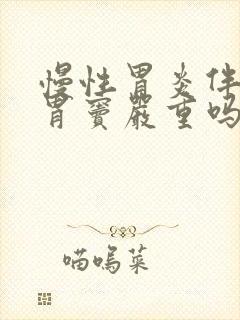 慢性胃炎伴
胃窦严重吗
喵呜菜